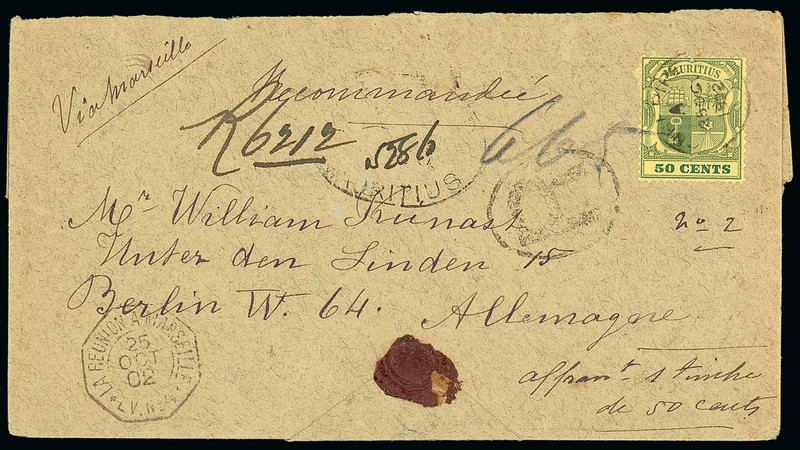 Via Marseille
Recommandée
R6212
5286
MAURITIUS
665
MAURITIUS
50 CENTS
Mr. William Künast
Unter den Linden 15
no 2
Berlin W. 64.
Allemagne
LA REUNION A MARSEILLE
25
OCT
02
L.V. No 4
R
affrant 1 timbre
de 50 cents